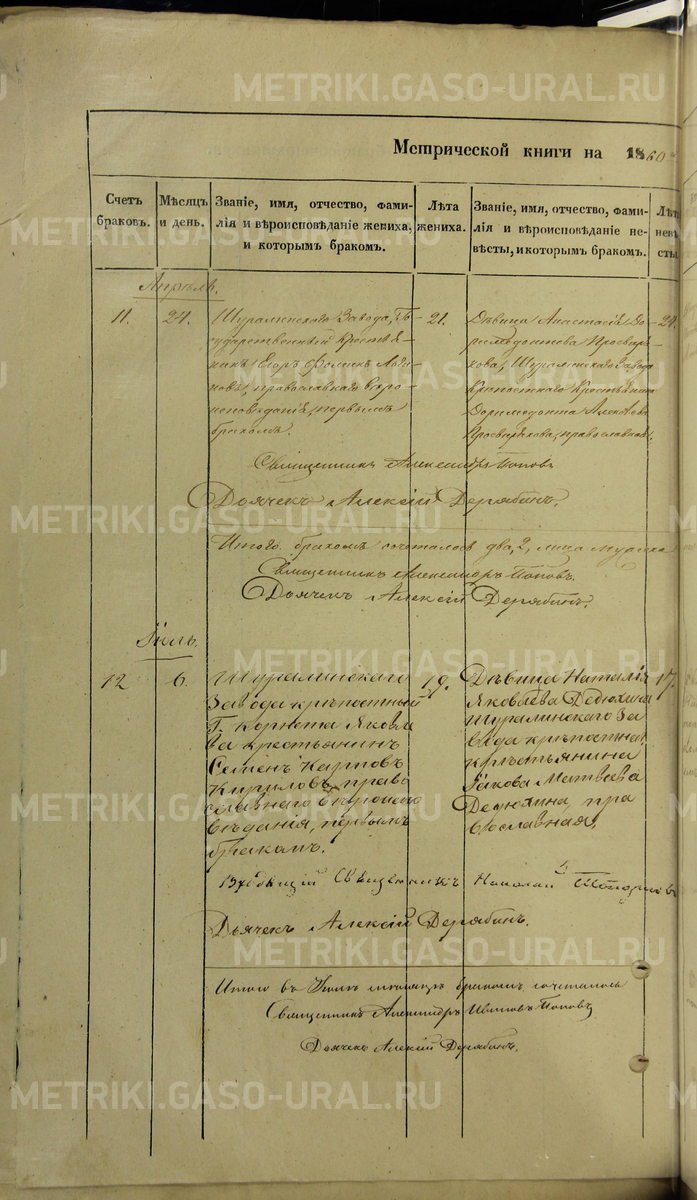 METRIKI.GASO-URAL.RU
Метрической книги на 1860
Счетъ браковъ.
Мѣсяцъ и день.
Званіе, имя, отчество, фами-
лія и вѣроисповѣданіе жениха,
и которымъ бракомъ.
Лѣта
жениха.
Званіе, имя, отчество, фами-
лія и вѣроисповѣданіе не-
вѣсты, и которымъ бракомъ.
Лѣта
невѣ
сты
Апрѣль.
11.
24.
Шуралинскаго Завода, Го-
сударственный крестья-
нинъ Егоръ Фоминъ
православнаго вѣро-
исповѣданія, первымъ
бракомъ.
21.
Дѣвица Анастасія До-
римедонтова Просвир-
кова, Шуралинскаго Завода
крѣпостнаго крестьянина
Доримедонта Алексѣева
Просвиркова, православная,
24.
Священникъ Александръ Поповъ
Дьячекъ Алексій Дерябинъ.
Итого бракомъ сочеталось два, 2, лица мужеска
Священникъ Александръ Поповъ.
Дьячекъ Алексій Дерябинъ.
Іюль.
12
6.
Шуралинскаго
Завода крѣпостный
Г. Корнета Яковле
ва крестьянинъ
Семенъ Карповъ
Кириловъ, право
славнаго вѣроиспо
вѣданія, первымъ
бракомъ.
19.
Дѣвица Наталія
Яковлева Дедюхина
Шуралинскаго За
вода крѣпостнаго
крѣстьянина
Іакова Матвѣева
Дедюхина, пра
вославная,
17.
Священникъ Николай Топорковъ
Дьячекъ Алексій Дерябинъ.
Итого въ Іюлѣ мѣсяцѣ бракомъ сочеталось
Священникъ Александръ Ивановъ Поповъ
Дьячекъ Алексій Дерябинъ.